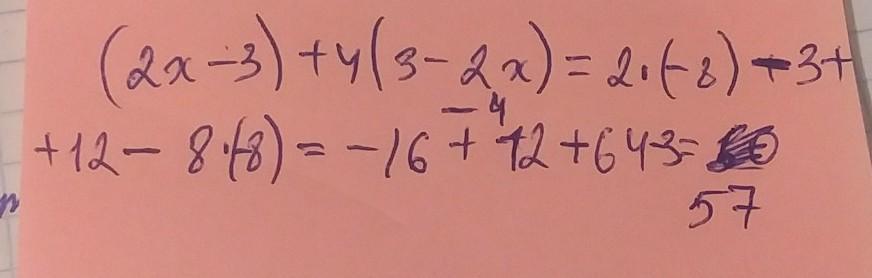 (2x-3)+4(3-2x)=2·(-8)-3+
+12-8·(-8)=-16+12+64-3=
57